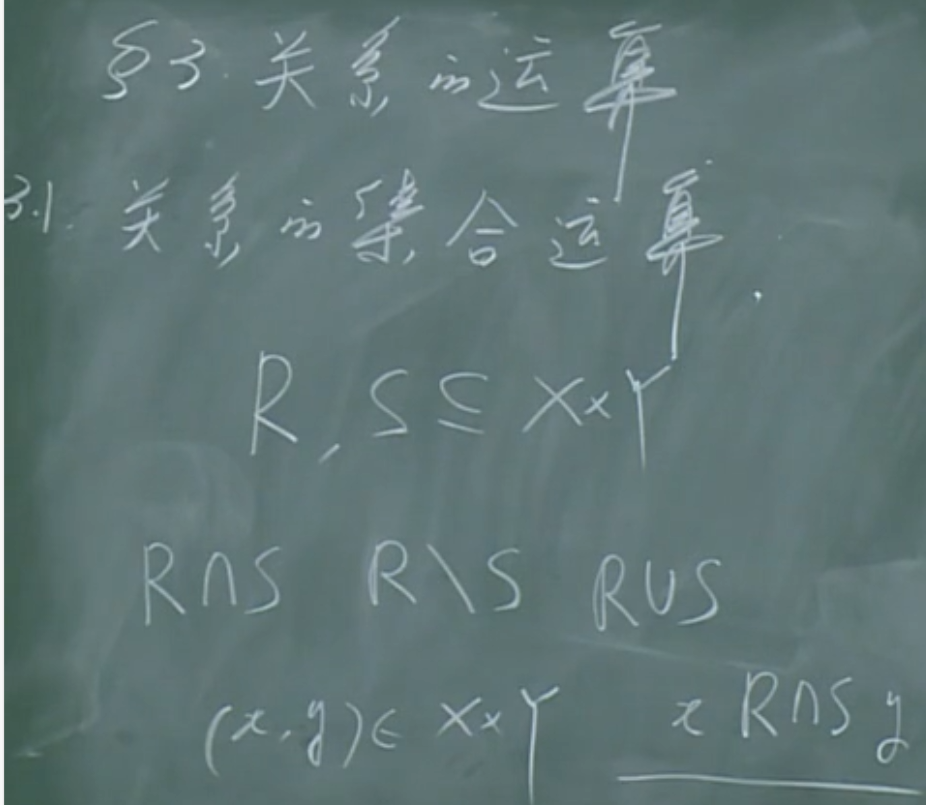 §3. 关系的运算
3.1. 关系的集合运算.
R, S ⊆ X×Y
R∩S R\S R∪S
(x,y)∈ X×Y x R∩S y